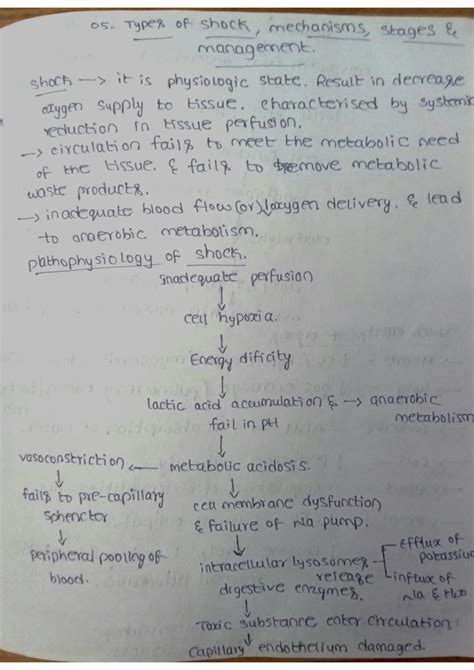 05. Types of shock, mechanisms, stages &
management.
shock → it is physiologic state. Result in decrease
oxygen supply to tissue. characterised by systemic
reduction in tissue perfusion.
→ circulation fails to meet the metabolic need
of the tissue. & fails to remove metabolic
waste products.
→ inadequate blood flow (or) ↓ oxygen delivery. & lead
to anaerobic metabolism.
pathophysiology of shock.
inadequate perfusion
↓
cell hypoxia.
↓
Energy dificity
↓
lactic acid accumulation & → anaerobic
fail in pH metabolism
↓
vasoconstriction ← metabolic acidosis.
↓ ↓
fails to pre-capillary cell membrane dysfunction
sphencter & failure of Na pump.
↓ ↓ efflux of
peripheral pooling of intracellular lysosomes potassium
blood. release influx of
digestive enzymes. Na & H2O
↓
Toxic substance, enter circulation,
↓
capillary endothelium damaged.